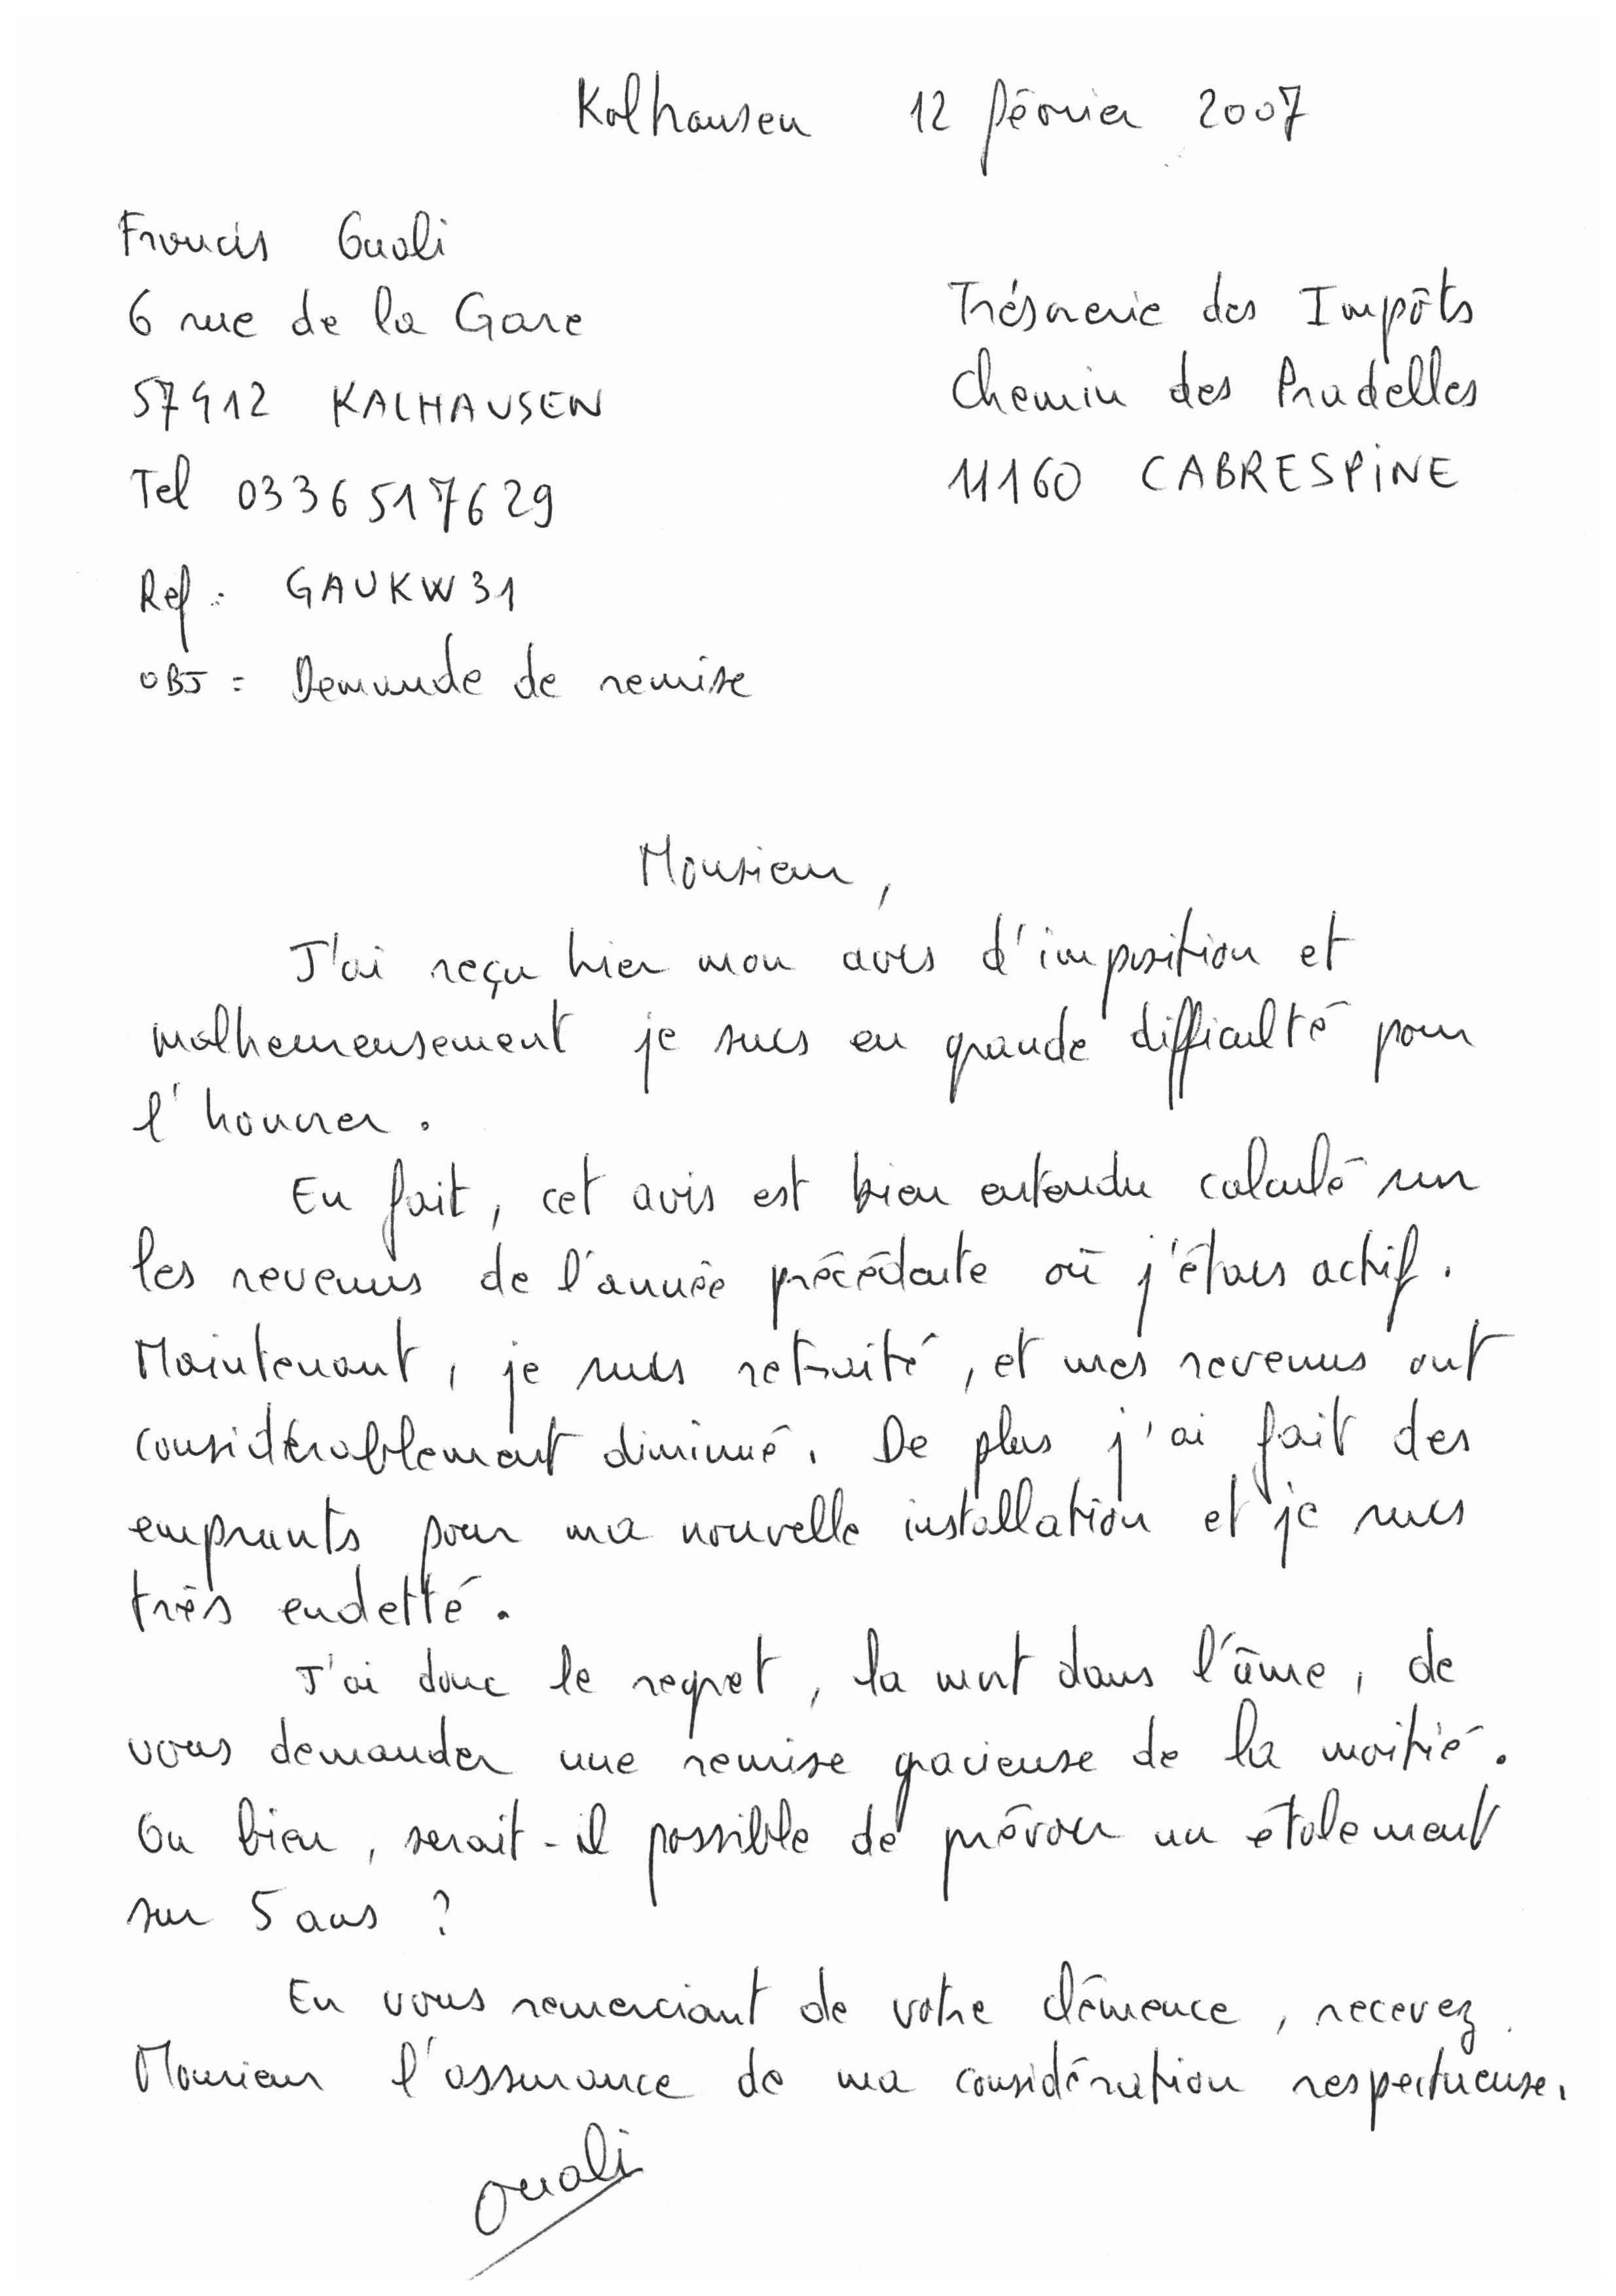 Kalhausen 12 février 2007
Francis Ouali
6 rue de la Gare
57412 KALHAUSEN
Tel 0336517629
Ref : GAUKW31
OBJ : Demande de remise
Trésorerie des Impôts
Chemin des Pradelles
11160 CABRESPINE
Monsieur,
J'ai reçu hier mon avis d'imposition et
malheureusement je suis en grande difficulté pour
l'honorer.
En fait, cet avis est bien entendu calculé sur
les revenus de l'année précédente où j'étais actif.
Maintenant, je suis retraité, et mes revenus ont
considérablement diminué. De plus j'ai fait des
emprunts pour ma nouvelle installation et je suis
très endetté.
J'ai donc le regret, la mort dans l'âme, de
vous demander une remise gracieuse de la moitié.
Ou bien, serait-il possible de prévoir un étalement
sur 5 ans ?
En vous remerciant de votre clémence, recevez
Monsieur l'assurance de ma considération respectueuse.
Ouali